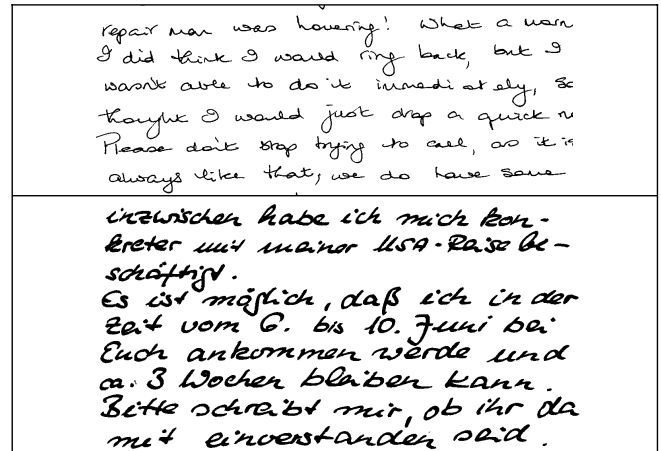 repair man was hovering! What a
I did think I would ring back, but I
wasn't able to do it immediately, so
thought I would just drop a quick
Please don't stop trying to call, as it is
always like that, we do have some
inzwischen habe ich mich kon-
kreter mit meiner USA-Reise be-
schäftigt.
Es ist möglich, daß ich in der
Zeit vom 6. bis 10. Juni bei
Euch ankommen werde und
ca. 3 Wochen bleiben kann.
Bitte schreibt mir, ob ihr da
mit einverstanden seid.